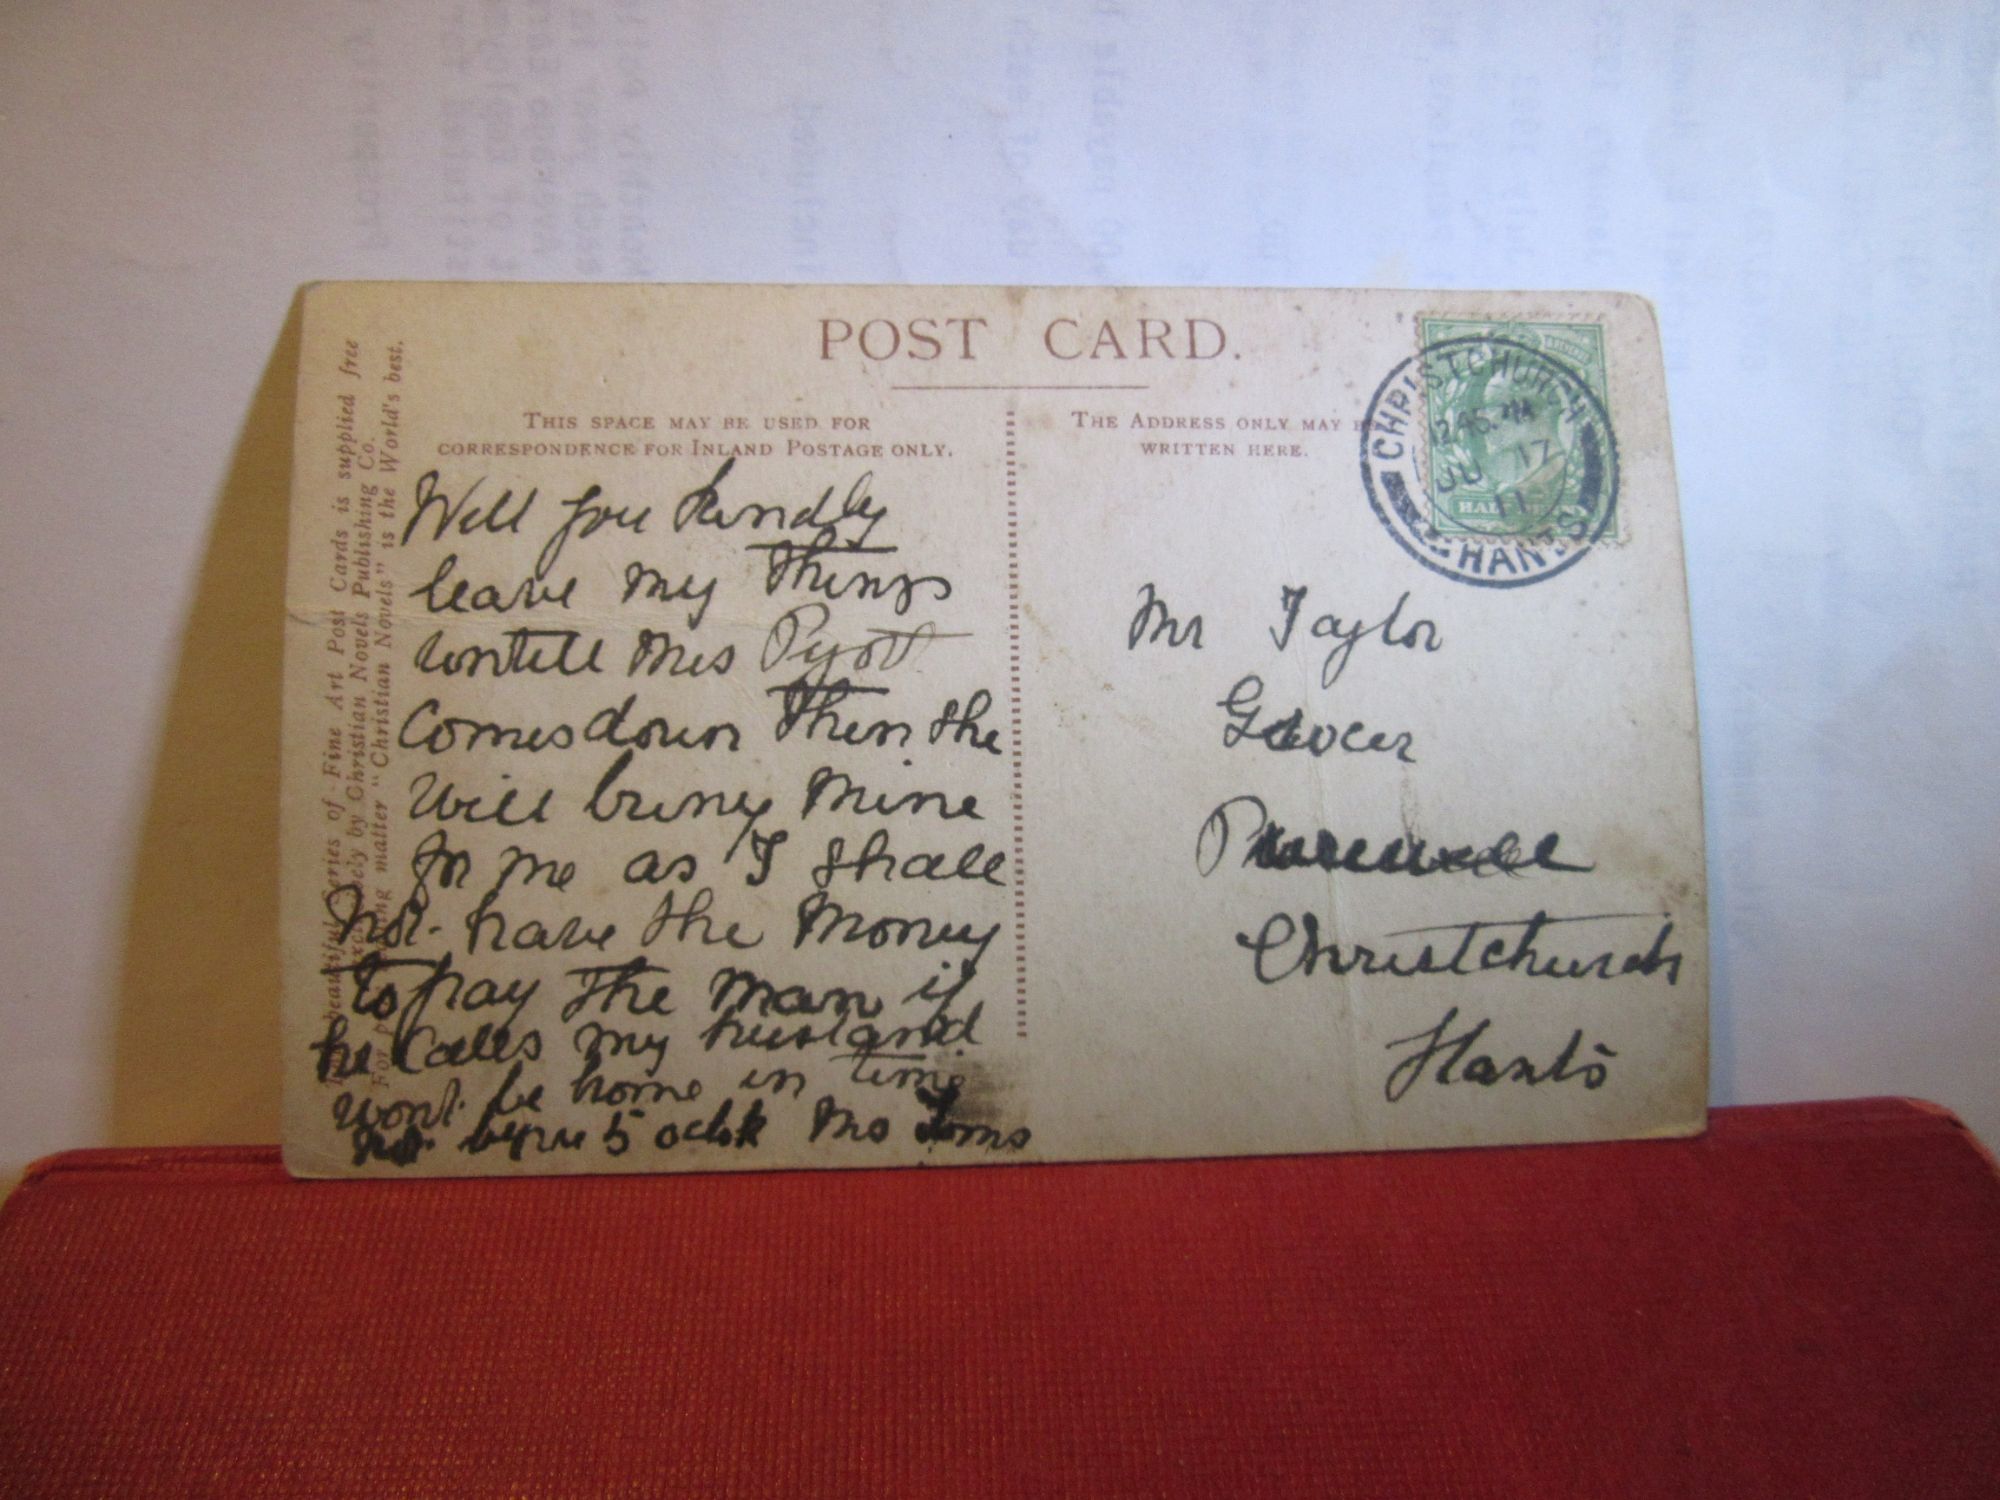 POST CARD.
THIS SPACE MAY BE USED FOR
CORRESPONDENCE FOR INLAND POSTAGE ONLY.
THE ADDRESS ONLY MAY B
WRITTEN HERE.
CHRISTCHURCH
12.45
JU 17
11
HANTS
HAL
Will you kindly
leave my things
untill Mrs Pyott
Comes down then she
will bring mine
for me as I shall
not have the money
to pay the man if
he calls my husband
wont be home in time
not before 5 oclok Mrs
Mr Taylor
Grocer
Purewell
Christchurch
Hants
beautiful Series of Fine Art Post Cards is supplied free
exclusively by Christian Novels Publishing Co.
For matter "Christian Novels" is the World's best.